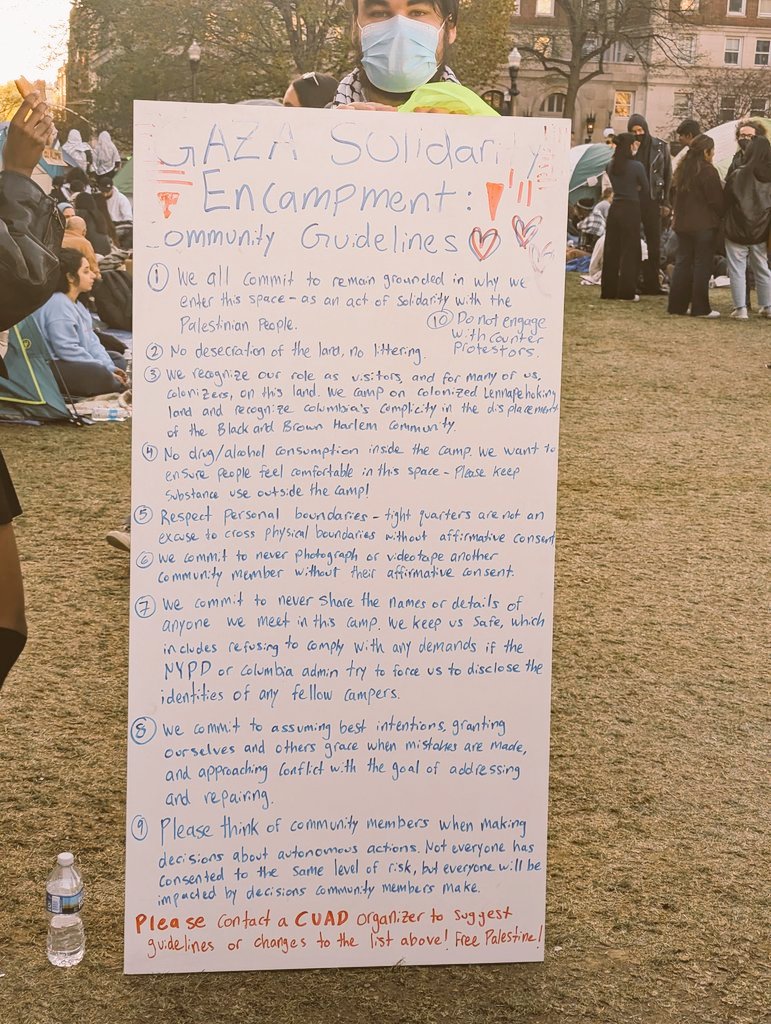 GAZA Solidarity
Encampment:
Community Guidelines
① We all commit to remain grounded in why we
enter this space - as an act of solidarity with the
Palestinian People.
② No desecration of the land, no littering.
⑩ Do not engage
with counter
protestors.
③ We recognize our role as visitors, and for many of us,
colonizers, on this land. We camp on colonized Lennapehoking
land and recognize columbia's complicity in the displacement
of the Black and Brown Harlem community.
④ No drug/alcohol consumption inside the camp. We want to
ensure people feel comfortable in this space - Please keep
substance use outside the camp!
⑤ Respect personal boundaries - tight quarters are not an
excuse to cross physical boundaries without affirmative consent
⑥ We commit to never photograph or videotape another
community member without their affirmative consent.
⑦ We commit to never share the names or details of
anyone we meet in this camp. We keep us safe, which
includes refusing to comply with any demands if the
NYPD or columbia admin try to force us to disclose the
identities of any fellow campers.
⑧ We commit to assuming best intentions, granting
ourselves and others grace when mistakes are made,
and approaching conflict with the goal of addressing
and repairing.
⑨ Please think of community members when making
decisions about autonomous actions. Not everyone has
consented to the same level of risk, but everyone will be
impacted by decisions community members make.
Please contact a CUAD organizer to suggest
guidelines or changes to the list above! Free Palestine!